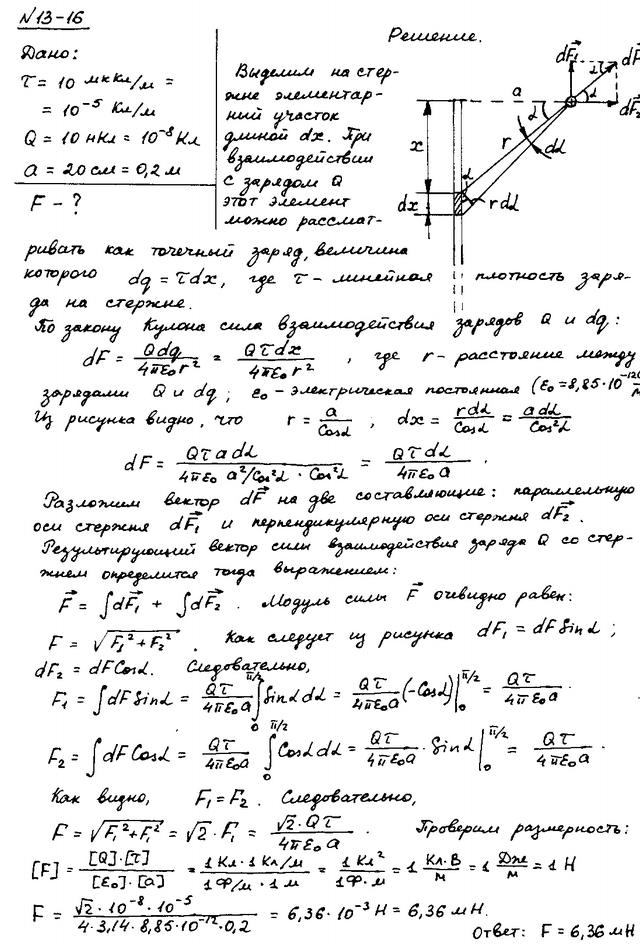 №13-16
Решение.
Дано:
τ = 10 мкКл/м =
= 10⁻⁵ Кл/м
Q = 10 нКл = 10⁻⁸ Кл
a = 20 см = 0,2 м
F - ?
Выделим на стер-
жне элементар-
ный участок
длиной dx. При
взаимодействии
с зарядом Q
этот элемент
можно рассмат-
dF₁
dF
α
dF₂
a
α
x
r
dα
α
dx
rdα
ривать как точечный заряд, величина
которого dq = τdx, где τ - линейная плотность заря-
да на стержне.
По закону Кулона сила взаимодействия зарядов Q и dq:
dF = Qdq/4πε₀r² = Qτdx/4πε₀r² , где r - расстояние между
зарядами Q и dq ; ε₀ - электрическая постоянная (ε₀=8,85·10⁻¹²
Из рисунка видно, что r = a/Cosα , dx = rdα/Cosα = adα/Cos²α
dF = Qτadα/4πε₀a²/Cos²α · Cos²α = Qτdα/4πε₀a .
Разложим вектор dF⃗ на две составляющие: параллельную
оси стержня dF⃗₁ и перпендикулярную оси стержня dF⃗₂.
Результирующий вектор силы взаимодействия заряда Q со стер-
жнем определится тогда выражением:
F⃗ = ∫dF⃗₁ + ∫dF⃗₂ . Модуль силы F⃗ очевидно равен:
F = √F₁²+F₂² . Как следует из рисунка dF₁ = dF Sinα ;
dF₂ = dFCosα. Следовательно,
F₁ = ∫dF Sinα = Qτ/4πε₀a ∫₀^π/2 Sinαdα = Qτ/4πε₀a (-Cosα)|₀^π/2 = Qτ/4πε₀a .
F₂ = ∫dF Cosα = Qτ/4πε₀a ∫₀^π/2 Cosαdα = Qτ/4πε₀a · Sinα|₀^π/2 = Qτ/4πε₀a .
Как видно, F₁=F₂. Следовательно,
F = √F₁²+F₁² = √2·F₁ = √2·Qτ/4πε₀a . Проверим размерность:
[F] = [Q]·[τ]/[ε₀]·[a] = 1 Кл·1 Кл/м/1Ф/м·1м = 1 Кл²/1Ф·м = 1 Кл·В/м = 1 Дж/м = 1 Н
F = √2·10⁻⁸·10⁻⁵/4·3,14·8,85·10⁻¹²·0,2 = 6,36·10⁻³ Н = 6,36 мН.
Ответ: F = 6,36 мН